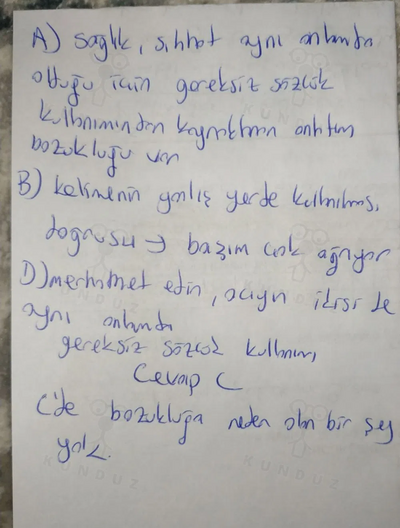 A) sağlık, sıhhat aynı anlamda
olduğu için gereksiz sözcük
kullanımından kaynaklanan anlatım
bozukluğu var
B) kelimenin yanlış yerde kullanılması,
doğrusu → başım çok ağrıyor
D) merhamet edin, acıyın ikisi de
aynı anlamda
gereksiz sözcük kullanımı
Cevap C
C'de bozukluğa neden olan bir şey
yok.
KUNDUZ